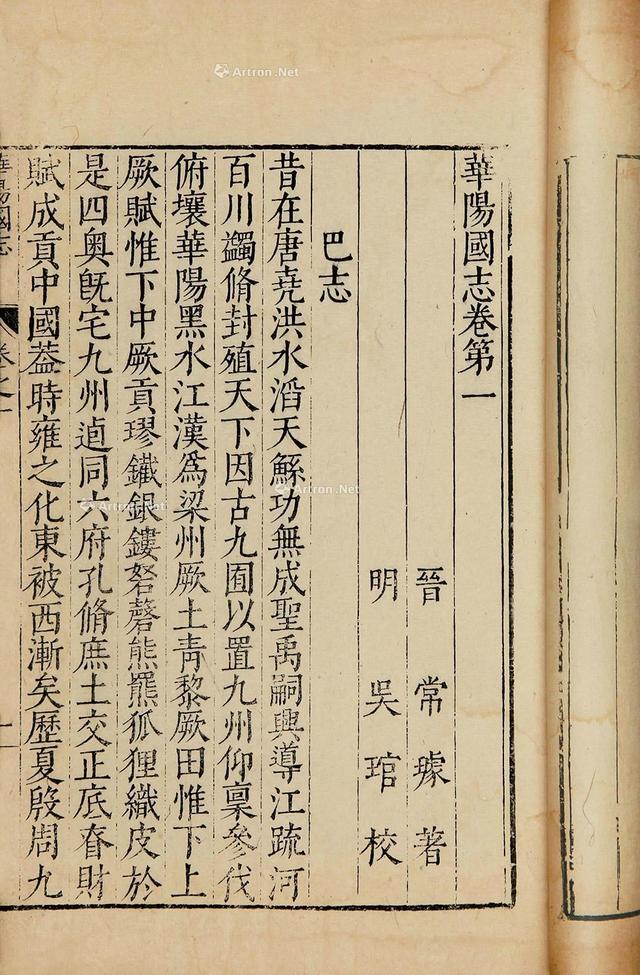 華陽國志卷第一
晉常璩著
明吳琯校
巴志
昔在唐堯洪水滔天鯀功無成聖禹嗣興導江疏河
百川蠲脩封殖天下因古九囿以置九州仰稟參伐
俯壤華陽黑水江漢為梁州厥土青黎厥田惟下上
厥賦惟下中厥貢璆鐵銀鏤砮磬熊羆狐狸織皮於
是四奧旣宅九州逌同六府孔脩庶土交正底眘財
賦成貢中國葢時雍之化東被西漸矣歷夏殷周九
華陽國志
卷之一
一
Artron.Net
Artron.Net
Artron.Net